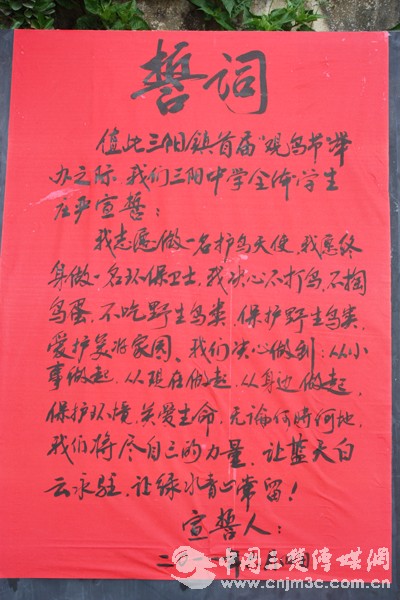 誓词
值此三阳镇首届“观鸟节”举
办之际，我们三阳中学全体学生
庄严宣誓：
我志愿做一名护鸟天使，我愿终
身做一名环保卫士，我决心不打鸟，不掏
鸟蛋，不吃野生鸟类，保护野生鸟类，
爱护美好家园、我们决心做到：从小
事做起，从现在做起，从身边做起，
保护环境，关爱生命，无论何时何地，
我们将尽自己的力量，让蓝天白
云永驻，让绿水青山常留！
宣誓人：
二〇一
中国三农传媒网
www.cnjm3c.com